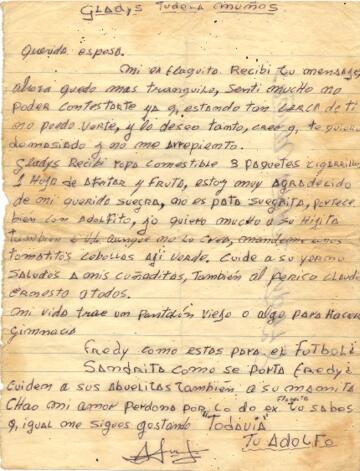 GLADYS TUDELA MUÑOS
Querida esposa.
Mi ex flaquita. Recibi tu mensage
ahora quedo mas tranquilo, senti mucho no
poder contestarte ya q, estando tan CERCA de ti
no puedo verte, y lo deseo tanto, creo q, te quiero
demasiado y no me arrepiento.
Gladys Recibi ropa comestible 3 paquetes cigarrillos
1 Hoja de afeitar y fruta, estoy muy agradecido
de mi querida suegra, no es pata suegrita, portece
bien con Adolfito, yo quiero mucho a su Hijita
también a Ud. aunque no lo crea, mandeme unos
tomatitos cebollas aji verde. Cuide a su yerno
saludos a mis cuñaditas, también al perico Claudio
Ernesto a todos.
mi vida trae un pantalón viejo o algo para hacer
gimnacia
Fredy como estas para el futbol?
Sandrita como se porta Fredy?
cuiden a sus abuelitas también a su mamita
Chao mi amor perdona por lo de ex. flaquita tu sabes
q, igual me sigues gostando "Todavia"
Tu ADOLFO